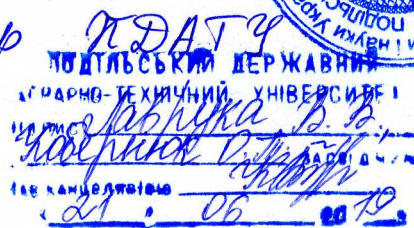 ПДАТУ
ПОДІЛЬСЬКИЙ ДЕРЖАВНИЙ
АГРАРНО-ТЕХНІЧНИЙ УНІВЕРСИТЕТ
Підпис Лаврука В. В.,
засвідчую
Зав. канцелярією
21 06 2019